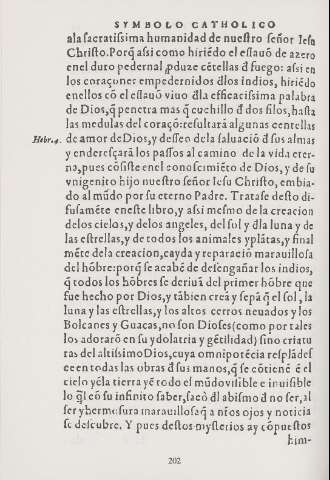 SYMBOLO CATHOLICO
ala sacratissima humanidad de nuestro señor Iesu
Christo. Porq̃ assi como hiriẽdo el eslauõ de azero
enel duro pedernal ꝓduze cẽtellas d̃ fuego: assi en
los coraçones empedernidos d̃los indios, hiriẽdo
enellos cõ el eslauõ viuo d̃la efficacissima palabra
de Dios, q̃ penetra mas q̃ cuchillo d̃ dos filos, hasta
las medulas del coraçõ: resultará algunas centellas
Hebr. 4. de amor de Dios, y desseo dela saluaciõ d̃ sus almas
y enderesçará los passos al camino de la vida eter-
na, pues cõsiste enel conoscimiẽto de Dios, y de su
vnigenito hijo nuestro señor Iesu Christo, embia-
do al mũdo por su eterno Padre. Tratase desto di-
fusamẽte eneste libro, y assi mesmo de la creacion
delos cielos, y delos angeles, del sol y d̃la luna y de
las estrellas, y de todos los animales y plãtas, y final
mẽte dela creacion, cayda y reparaciõ marauillosa
del hõbre: porq̃ se acabẽ de desengañar los indios,
q̃ todos los hõbres se deriuã del primer hõbre que
fue hecho por Dios, y tãbien creã y sepã q̃ el sol, la
luna y las estrellas, y los altos cerros neuados y los
Bolcanes y Guacas, no son Dioses (como por tales
los adorarõ en su ydolatria y gẽtilidad) sino criatu
ras del altissimo Dios, cuya omnipotẽcia resplãdes
ce en todas las obras d̃ sus manos, q̃ se cõtienẽ ẽ el
cielo y ẽla tierra y ẽ todo el mũdo visible e inuisible
lo q̃l cõ su infinito saber, sacò d̃l abismo d̃ no ser, al
ser y hermosura marauillosa q̃ a nr̃os ojos y noticia
se descubre. Y pues destos mysterios ay cõpuestos
him-
202